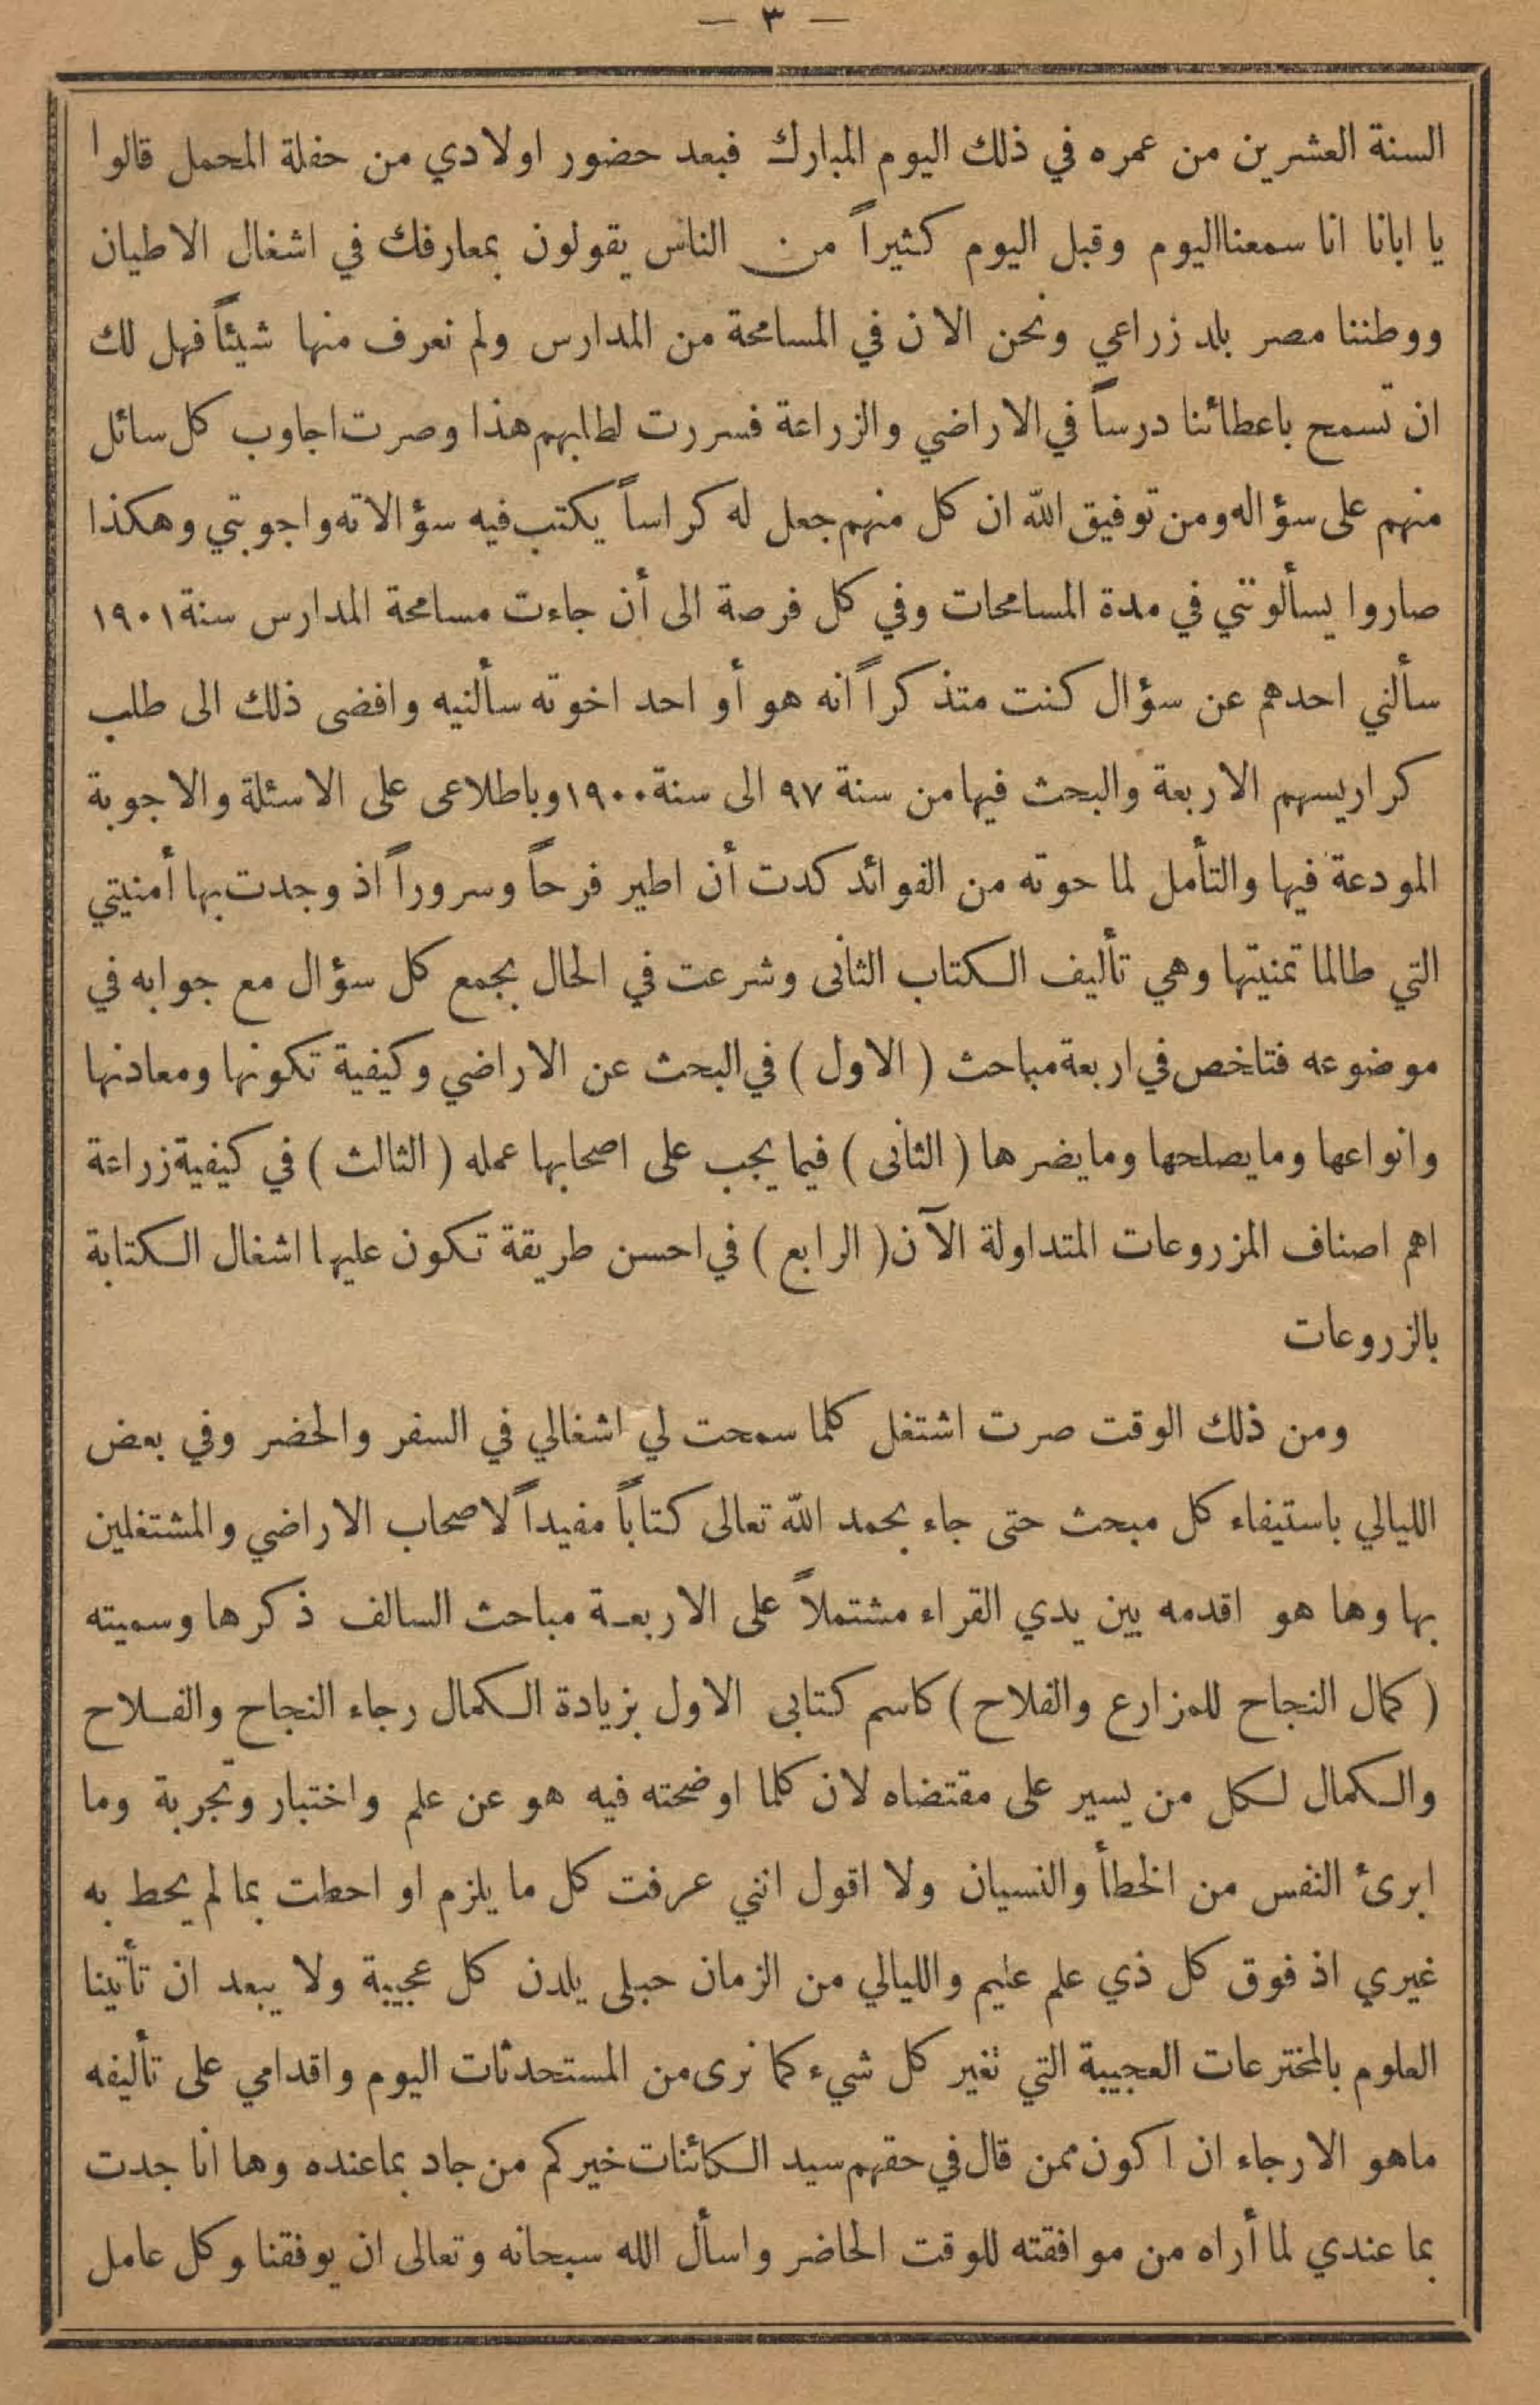 — ٣ —
السنة العشرين من عمره في ذلك اليوم المبارك فبعد حضور اولادي من حفلة المحمل قالوا
يا ابانا انا سمعنااليوم وقبل اليوم كثيراً من الناس يقولون بمعارفك في اشغال الاطيان
ووطننا مصر بلد زراعي ونحن الان في المسامحة من المدارس ولم نعرف منها شيئاً فهل لك
ان تسمح باعطائنا درساً في الاراضي والزراعة فسررت لطلبهم هذا وصرت اجاوب كل سائل
منهم على سؤاله ومن توفيق الله ان كل منهم جعل له كراساً يكتب فيه سؤالاته واجوبتي وهكذا
صاروا يسألونني في مدة المسامحات وفي كل فرصة الى أن جاءت مسامحة المدارس سنة ١٩٠١
سألني احدهم عن سؤال كنت متذكراً انه هو أو احد اخوته سألنيه وافضى ذلك الى طلب
كراريسهم الاربعة والبحث فيها من سنة ٩٧ الى سنة ١٩٠٠ وباطلاعى على الاسئلة والاجوبة
المودعة فيها والتأمل لما حوته من الفوائد كدت أن اطير فرحاً وسروراً اذ وجدت بها أمنيتي
التي طالما تمنيتها وهي تأليف الكتاب الثانى وشرعت في الحال بجمع كل سؤال مع جوابه في
موضوعه فتلخص في اربعة مباحث ( الاول ) في البحث عن الاراضي وكيفية تكونها ومعادنها
وانواعها وما يصلحها وما يضرها ( الثانى ) فيما يجب على اصحابها عمله ( الثالث ) في كيفية زراعة
اهم اصناف المزروعات المتداولة الآن ( الرابع ) في احسن طريقة تكون عليها اشغال الكتابة
بالزروعات
ومن ذلك الوقت صرت اشتغل كلما سمحت لي اشغالي في السفر والحضر وفي بعض
الليالي باستيفاء كل مبحث حتى جاء بحمد الله تعالى كتاباً مفيداً لاصحاب الاراضي والمشتغلين
بها وها هو اقدمه بين يدي القراء مشتملاً على الاربعة مباحث السالف ذكرها وسميته
( كمال النجاح للمزارع والفلاح ) كاسم كتابى الاول بزيادة الكمال رجاء النجاح والفلاح
والكمال لكل من يسير على مقتضاه لان كلما اوضحته فيه هو عن علم واختبار وتجربة وما
ابرئ النفس من الخطأ والنسيان ولا اقول انني عرفت كل ما يلزم او احطت بما لم يحط به
غيري اذ فوق كل ذي علم عليم والليالي من الزمان حبلى يلدن كل عجيبة ولا يبعد ان تأتينا
العلوم بالمخترعات العجيبة التي تغير كل شيء كما نرى من المستحدثات اليوم واقدامي على تأليفه
ماهو الا رجاء ان اكون ممن قال في حقهم سيد الكائنات خيركم من جاد بماعنده وها انا جدت
بما عندي لما أراه من موافقته للوقت الحاضر واسأل الله سبحانه وتعالى ان يوفقنا وكل عامل